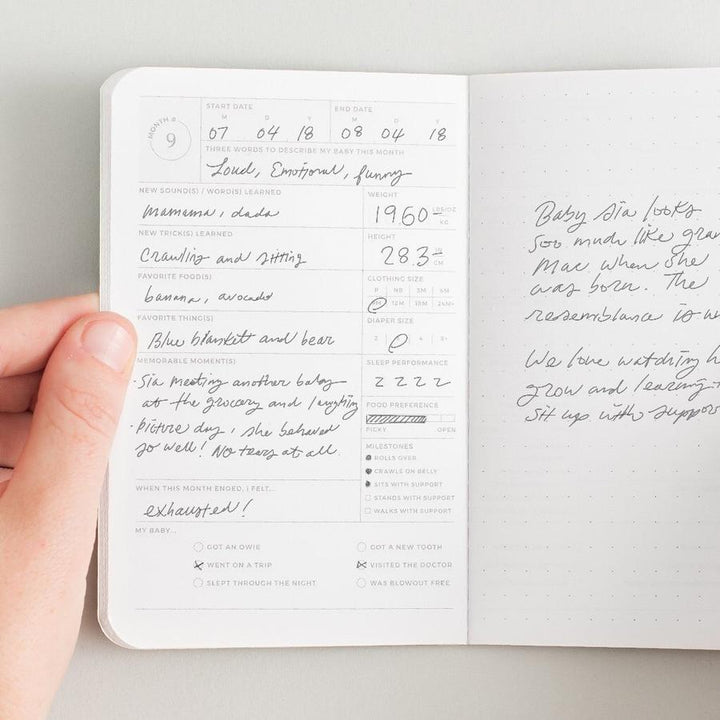 MONTH # 9
START DATE
END DATE
M D Y M D Y
07 04 18 08 04 18
THREE WORDS TO DESCRIBE MY BABY THIS MONTH
Loud, Emotional, funny
NEW SOUND(S) / WORD(S) LEARNED
mamama, dada
WEIGHT
1960 LBS/OZ KG
NEW TRICK(S) LEARNED
Crawling and sitting
HEIGHT
28.3 IN CM
FAVORITE FOOD(S)
banana, avocado
CLOTHING SIZE
P NB 3M 6M
9M 12M 18M 24M+
FAVORITE THING(S)
Blue blankett and bear
DIAPER SIZE
2 4 5+
MEMORABLE MOMENT(S)
· Sia meeting another baby
at the grocery and laughing
· Picture day, she behaved
so well! No tears at all
SLEEP PERFORMANCE
Z Z Z Z
FOOD PREFERENCE
PICKY OPEN
MILESTONES
ROLLS OVER
CRAWLS ON BELLY
SITS WITH SUPPORT
STANDS WITH SUPPORT
WALKS WITH SUPPORT
WHEN THIS MONTH ENDED, I FELT...
exhausted!
MY BABY...
GOT AN OWIE
GOT A NEW TOOTH
WENT ON A TRIP
VISITED THE DOCTOR
SLEPT THROUGH THE NIGHT
WAS BLOWOUT FREE
Baby Sia looks
soo much like gran
Mac when she
was born. The
resemblance is
We love watching h
grow and learning
sit up with suppor